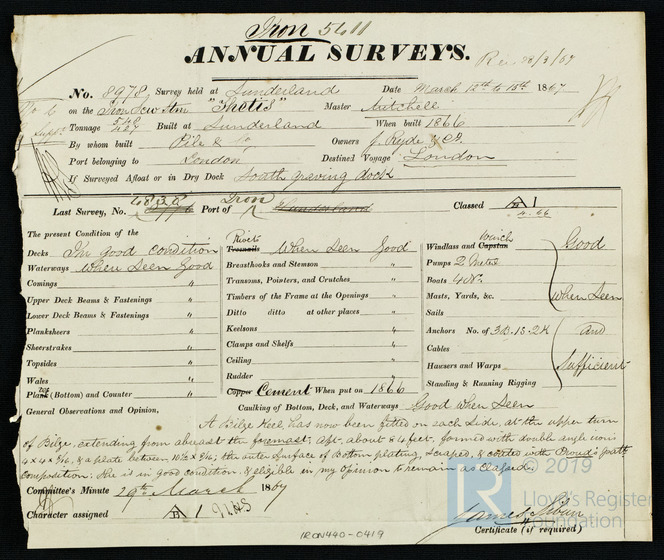 Iron 5611
ANNUAL SURVEYS.
Rec 28/3/67
No. 8978 Survey held at Sunderland Date March 12th to 15th 1867
on the Iron Scw Stm "Thetis" Master Mitchell
Tonnage Built at Sunderland When built 1866
By whom built Pile & Co Owners J. Ryde & Co.
Port belonging to London Destined Voyage London
If Surveyed Afloat or in Dry Dock South graving dock
Last Survey, No. Port of Iron Sunderland Classed A 1
4.66
The present Condition of the
Decks In Good condition
Waterways When Seen Good
Comings "
Upper Deck Beams & Fastenings "
Lower Deck Beams & Fastenings "
Planksheers "
Sheerstrakes "
Topsides "
Wales "
Plank (Bottom) and Counter "
Rivets
Treenails When Seen Good
Breasthooks and Stemson "
Transoms, Pointers, and Crutches "
Timbers of the Frame at the Openings "
Ditto ditto at other places "
Keelsons "
Clamps and Shelfs "
Ceiling "
Rudder "
Copper Cement When put on 1866
Winch
Windlass and Capstan Good
Pumps 2 Metal
Boats 4 Or.
Masts, Yards, &c. When Seen
Sails
Anchors No. of 3B. 1S. 2K and
Cables
Hausers and Warps Sufficient
Standing & Running Rigging
General Observations and Opinion, Caulking of Bottom, Deck, and Waterways Good When Seen
A Bilge Keel has now been fitted on each Side, at the upper turn
of Bilge, extending from abreast the foremast; aft about 84 feet, formed with double angle irons
4 x 4 x & a plate between the outer Surface of Bottom plating, Scraped, & coated with
composition; She is in good condition & eligible in my opinion to remain as Classed.
Committee's Minute 29th March 1867
Character assigned A 1
Certificate (if required)
IRON440-0419
LR
© 2019
Lloyd's Register
Foundation